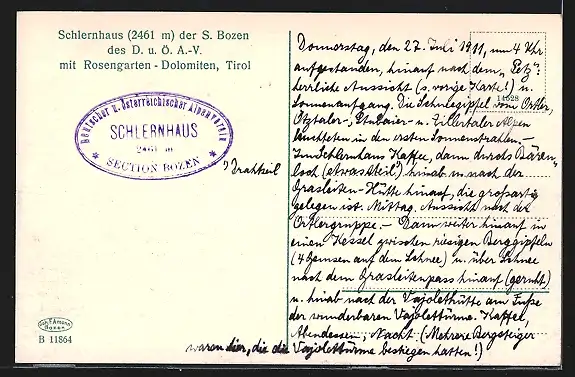 Schlernhaus (2461 m) der S. Bozen
des D. u. Ö. A.-V.
mit Rosengarten - Dolomiten, Tirol
Deutscher u. österreichischer Alpenverein
SCHLERNHAUS
2461 m
SECTION BOZEN
Joh. F. Amonn
Bozen
B 11864
14628
Donnerstag, den 27. Juli 1911, um 4 Uhr
aufgestanden, hinauf nach dem „Petz“:
herrliche Aussicht (s. vorige Karte!) u.
Sonnenaufgang. Die Schneegipfel von Ortler,
Ötztaler-, Stubaier- u. Zillertaler Alpen
leuchteten in den ersten Sonnenstrahlen. –
Im Schlernhaus Kaffee, dann durchs Bären-
loch (etwas steil) hinab u. nach der
Grasleiten-Hütte hinauf, die großartig
gelegen ist. Mittag. Aussicht nach der
Ortlergruppe. – Dann weiter hinauf in
einen Kessel zwischen riesigen Berggipfeln
(4 Gemsen auf dem Schnee) u. über Schnee
nach dem Grasleitenpass hinauf (geruht)
u. hinab nach der Vajolethütte am Fuße
der wunderbaren Vajolettürme. Kaffee,
Abendessen; Nacht. (Mehrere Bergsteiger
waren hier, die die Vajolettürme bestiegen hatten!)
Drahtseil